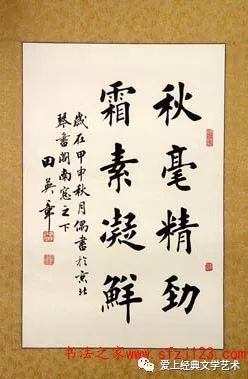 秋毫精勁
霜素凝鮮
歲在甲申秋月偶書於京北
琴書閣南窓之下
田英章
书法之家www.sfzj123.com
爱上经典文学艺术